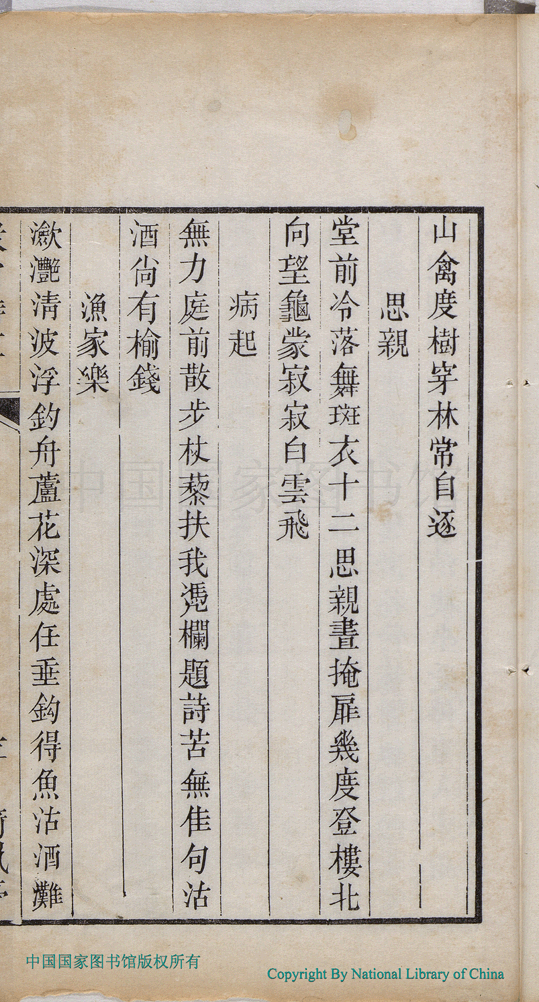 山禽度樹穿林常自逐
思親
堂前冷落舞斑衣十二思親晝掩扉幾度登樓北
向望龜蒙寂寂白雲飛
病起
無力庭前散步杖藜扶我凴欄題詩苦無佳句沽
酒尙有榆錢
漁家樂
瀲灩清波浮釣舟蘆花深處任垂鈎得魚沽酒灘
中国国家图书馆
中国国家图书馆版权所有
Copyright By National Library of China